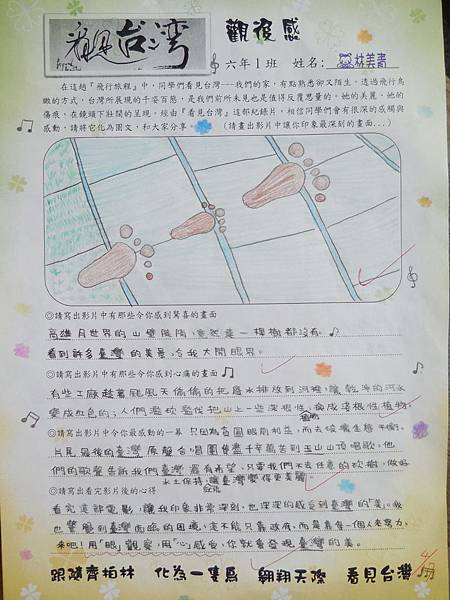 看見台灣
觀後感
六年1班 姓名:林美書
在這趟『飛行旅程』中,同學們看見台灣---我們的家,有點熟悉卻又陌生,透過飛行鳥
瞰的方式,台灣所展現的千姿百態,是我們前所未見也是值得反覆思量的。她的美麗、她的
傷痕,在鏡頭下壯闊的呈現。經由『看見台灣』這部紀錄片,相信同學們會有很深的感觸與
感動,請將它化為圖文,和大家分享。 (請畫出影片中讓你印象最深刻的畫面...)
◎請寫出影片中有那些令你感到驚喜的畫面
高雄月世界的山壁陡峭,竟然連一棵樹都沒有。
看到許多臺灣的美景,令我大開眼界。
◎請寫出影片中有那些令你感到心痛的畫面
有些工廠趁著颱風天偷偷的把廢水排放到河裡,讓乾淨的河水
變成紅色的;人們濫砍
把山上一些深根性,換成淺根性植物,
◎請寫出影片中令你最感動的一幕
只因為貪圖眼前利益,而去破壞生態平衡。
片尾最後的臺灣原聲合唱團費盡千辛萬苦到玉山山頂唱歌,他
們的歌聲告訴我們臺灣還有希望,只要我們不去任意的砍樹,做好
水土保持,讓臺灣變得更美麗。
◎請寫出看完影片後的心得
看完這部電影,讓我印象非常深刻,也深深的感受到臺灣的「美」。我
也警覺到臺灣面臨的困境,這不能只靠政府,而是靠每一個人來努力,
來吧!用「眼」觀察,用「心」感受,你就會發現臺灣的美。
跟隨齊柏林 化為一隻鳥 翱翔天際 看見台灣